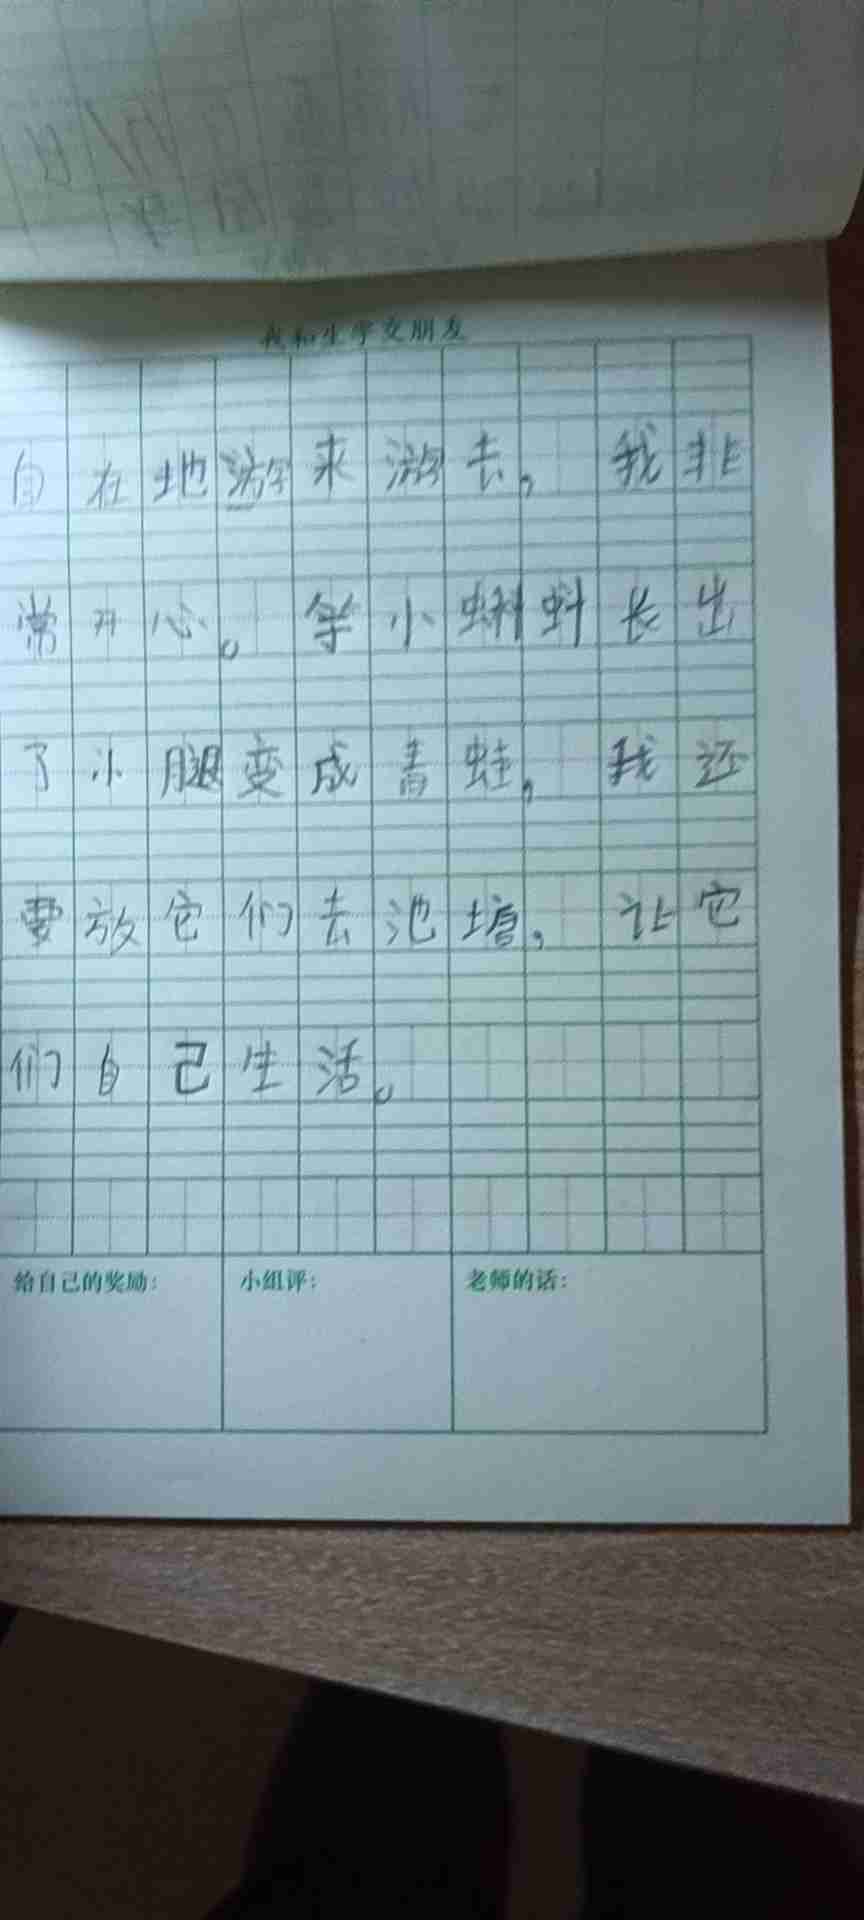 我和生字交朋友
自在地游来游去，我非
常开心。等小蝌蚪长出
了小腿变成青蛙，我还
要放它们去池塘，让它
们自己生活。
给自己的奖励：
小组评：
老师的话：